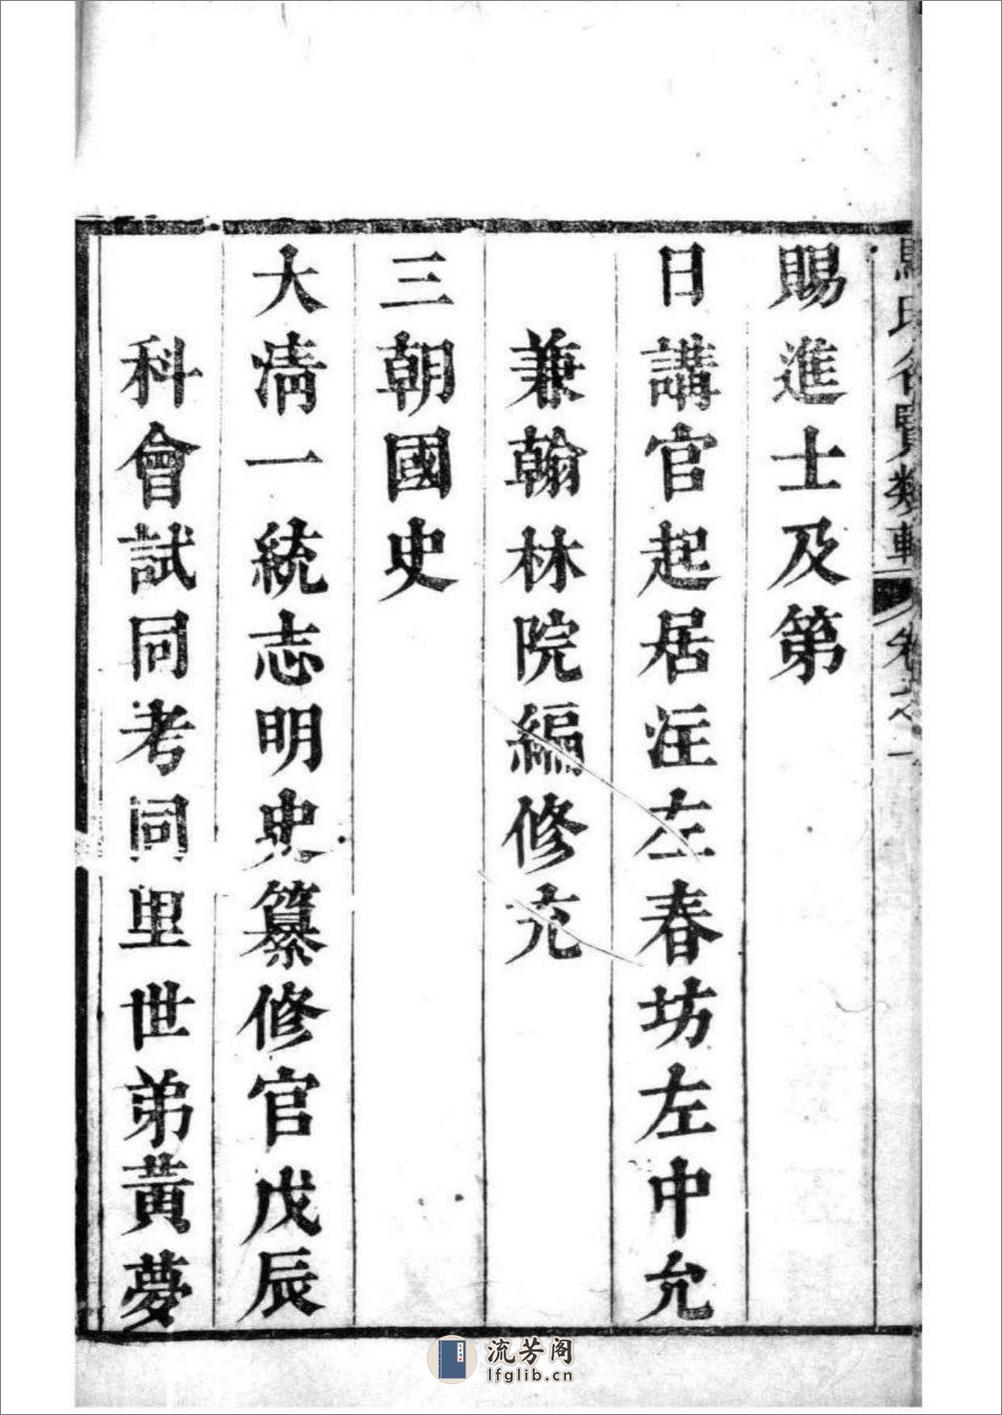 氏名賢類輯 卷之一
賜進士及第
日講官起居注左春坊左中允
兼翰林院編修充
三朝國史
大清一統志明史纂修官戊辰
科會試同考同里世弟黃夢
流芳阁
lfglib.cn